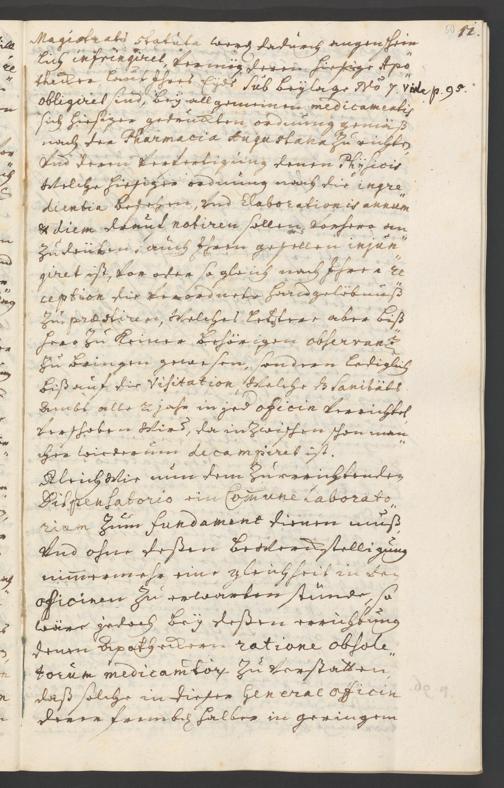 52.
Magistrats Statuta werd dadurch augenschein
lich infringiret, vermög deren hiesige Apo
thecker laut Ihres Eyds sub beylage No 7. vide p. 95.
obligiret sind, bey allgemeinen medicamentis
sich hiesiger gedruckten ordnung gemäß
nach der Pharmacia Augustana zu richten
und deren Verfertigung denen Physicis
welche hiesiger ordnung nach die ingre
dientia besehen, und Elaborationis annum
& diem darauf notiren sollen, vorhero an
zudeuten, auch Ihren gesellen injun
giret ist, von oder so gleich nach Ihrer re
ception die verordnete handgelöbnuß
zu praestiren, welches letztere aber biß
hero zu keiner behörigen observanz
zu bringen gewesen, sondern lediglich
biß auf die Visitation, welche Sanitäts
Ambt alle 2 Jahr in jed officin verrichtet
verschoben wird, da inzwischen schon man
cher wiederum decampiret ist.
Gleichwie nun dem zu errichtenden
Dispensatorio ein Commune Laborato
rium zum fundament dienen muß,
und ohne deßen bewerckstelligung
nimmermehr eine gleichheit in den
officinen zu erwarten stünde, so
wäre jedoch bey deßen errichtung
denen Apotheckern ratione obsole
torum medicamtor zu verstatten,
daß solche in dieser General officin
derer halber in geringem